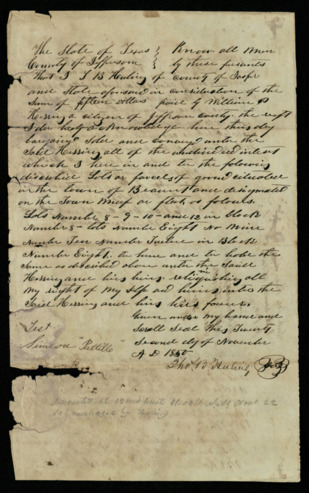 The State of Texas } Know all Men
County of Jefferson } by these presents
That I T B Huling of County of Jasper
and State aforesaid in consideration of the
Sum of fifteen dollars paid by William P
Herring a citizen of Jefferson County the receipt
I do hereby acknowledge have this day
bargained Sold and conveyed unto the
Said Herring all of the
which I have in and to the following
described Lots or parcels of ground situated
in the town of Beaumont and designated
on the Town Map or plat as follows
Lots Number 8 - 9 - 10 - and 12 in Block
Number 8 - lots Number Eight No Nine
Number Ten Number Twelve in Block
Number Eight to have and to hold the
Same as described above unto the Said
Herring and his heirs relinquishing all
my right of My Self and heirs unto the
Said Herring and his heirs forever
Given under my hand and
Test Scroll Seal this Twenty
Simeon Second day of November
A D 1840
Thos B Huling